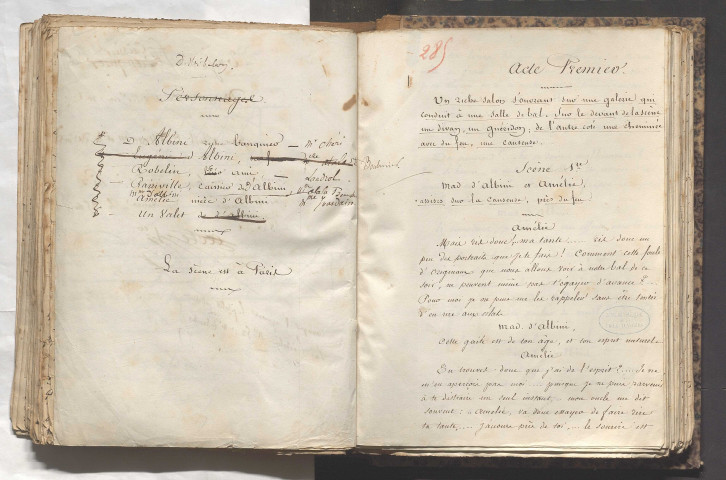 Personnages
D'Albini, riche banquier — Mr Chéri
d'Albini,
Robelin, son ami, — Landrol
Rainville, caissier de D'Albini
Mme d'Albini
Amélie nièce d'Albini
Un Valet de d'Albini
La scène est à Paris
285
Acte Premier.
Un riche salon s'ouvrant sur une galerie qui
conduit à une salle de bal. Sur le devant de la scène
un divan, un guéridon; de l'autre coté une cheminée
avec du feu, une causeuse.
Scène 1re
Mad d'Albini et Amélie,
assises sur la causeuse, près du feu
Amélie
Mais ris donc, ma tante.... ris donc un
peu des portraits que je te fais! Comment cette foule
d'originaux que nous allons voir à notre bal de ce
soir, ne peuvent même pas t'égayer d'avance?...
Pour moi je ne puis me les rappeler sans être tentée
d'en rire aux éclats.
Mad. d'Albini.
Cette gaité est de ton âge, et ton esprit naturel
Amélie
Tu trouves donc que j'ai de l'esprit?... Je ne
m'en aperçois pas moi.... puisque je ne puis parvenir
à te distraire un seul instant,.. mon oncle me dit
souvent: « Amélie, va donc essayer de faire rire
ta tante,.... j'accours près de toi,... le sourire est